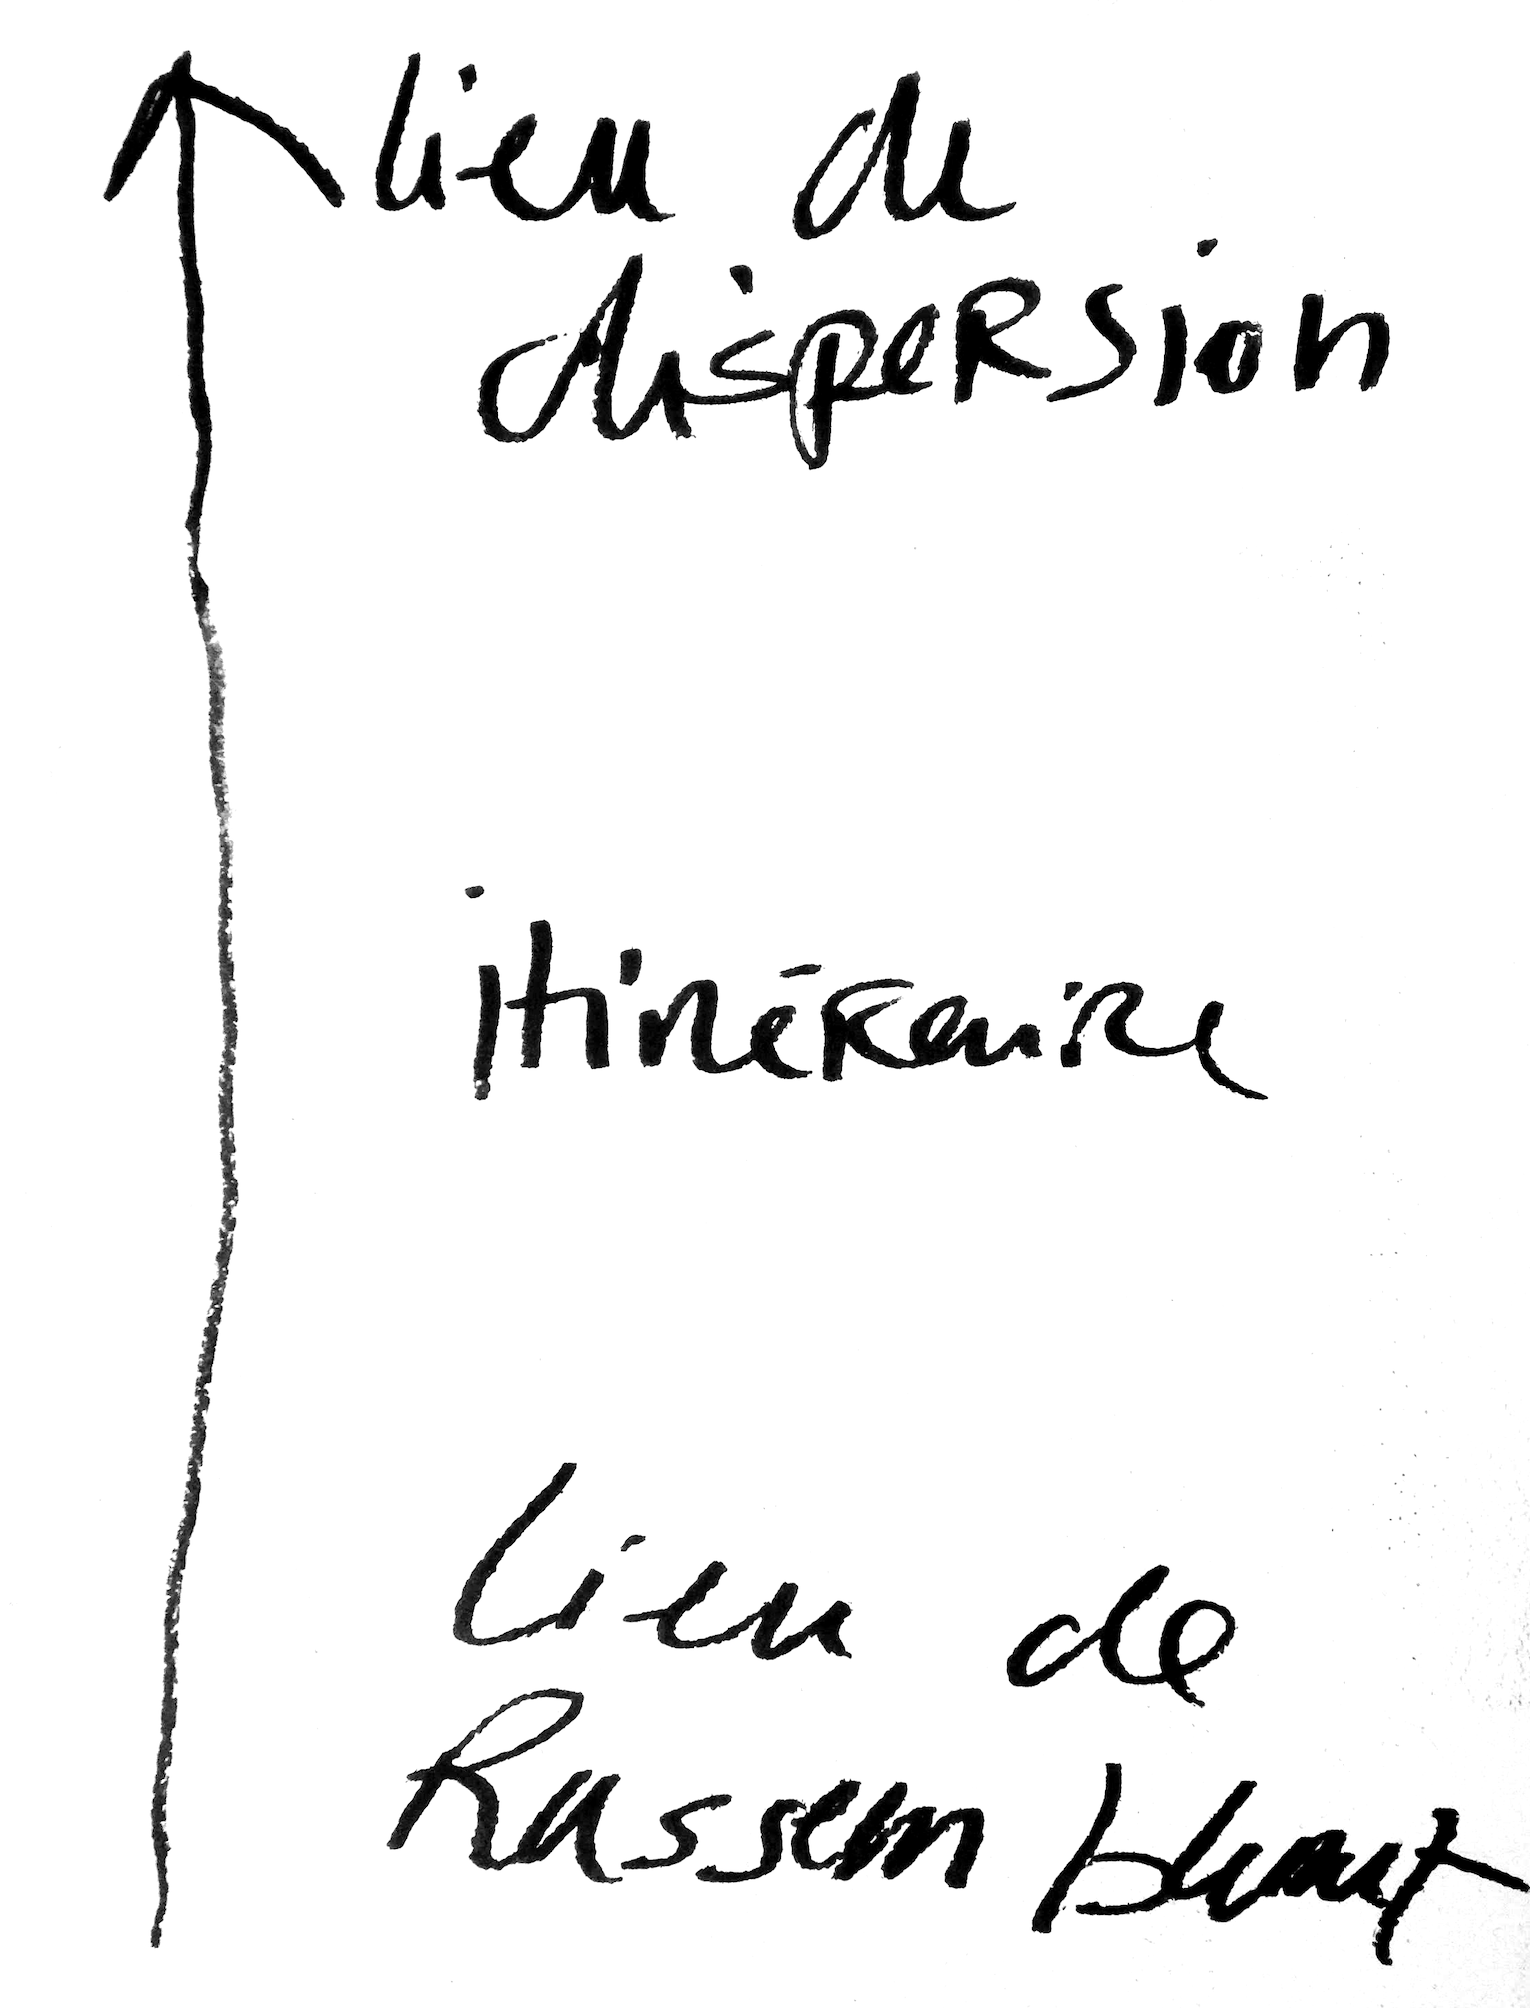 lieu de
dispersion
itinéraire
Lieu de
Rassemblement